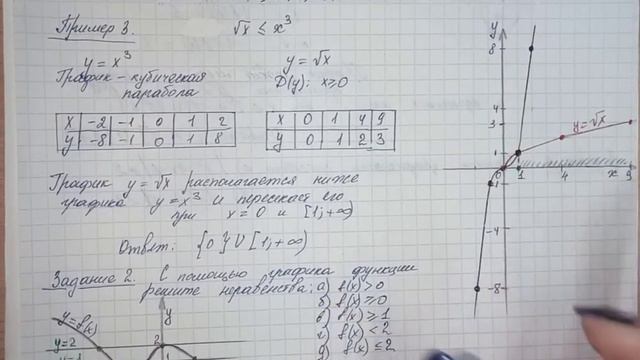 Пример 3. √x ≤ x³
y = x³ y = √x
График – кубическая D(y): x ≥ 0
парабола
x -2 -1 0 1 2
y -8 -1 0 1 8
x 0 1 4 9
y 0 1 2 3
График y = √x располагается ниже
графика y = x³ и пересекает его
при x = 0 и [1; +∞)
Ответ: {0} ∪ [1; +∞)
Задание 2. С помощью графика функции
решите неравенства: а) f(x) > 0
б) f(x) ≥ 0
в) f(x) ≥ 1
г) f(x) < 2
д) f(x) ≤ 2
y = f(x)
y = 2
2
y
1
y
8
4
3
1
y = √x
0 1 4 x 9
-1
-4
-8